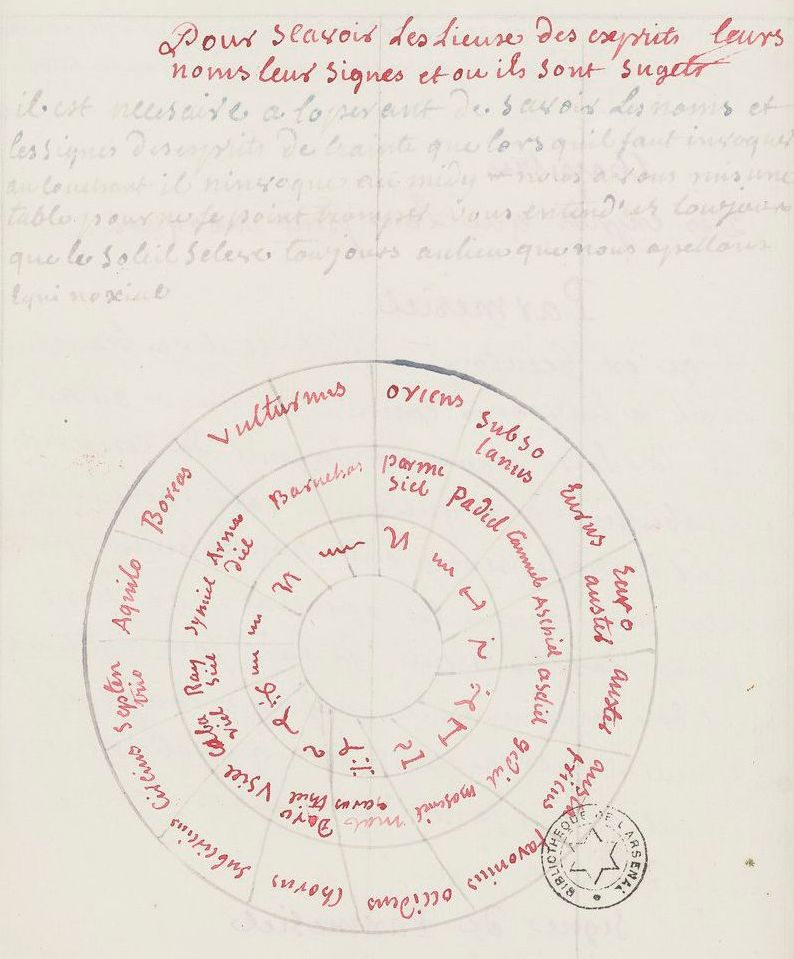 Pour scavoir Les Lieux des esprits leurs
noms leur signes et ou ils sont sugets
il est necesaire a loperant de savoir Les noms et
les signes des esprits de crainte que lors quil faut invoquer
au couchant il ninvoque au midy nous avous mis une
table pour ne se point tromper, vous entend'es toujours
que le soleil seleve toujours au lieu que nous apellons
Equinoxial
oriens
subso
lanus
Eurus
Euro
auster
auster
aust
ricus
favonius
occidens
Chorus
subcircius
Circius
Septen
trio
Aquilo
Boreas
Vulturnus
parme
siel
Padiel
Camuel
Aschiel
asdiel
gediel
maseriel
Doro
Usiel
Caba
riel
Ray
siel
Symiel
Arma
diel
Baruchas
BIBLIOTHEQUE DE L'ARSENAL